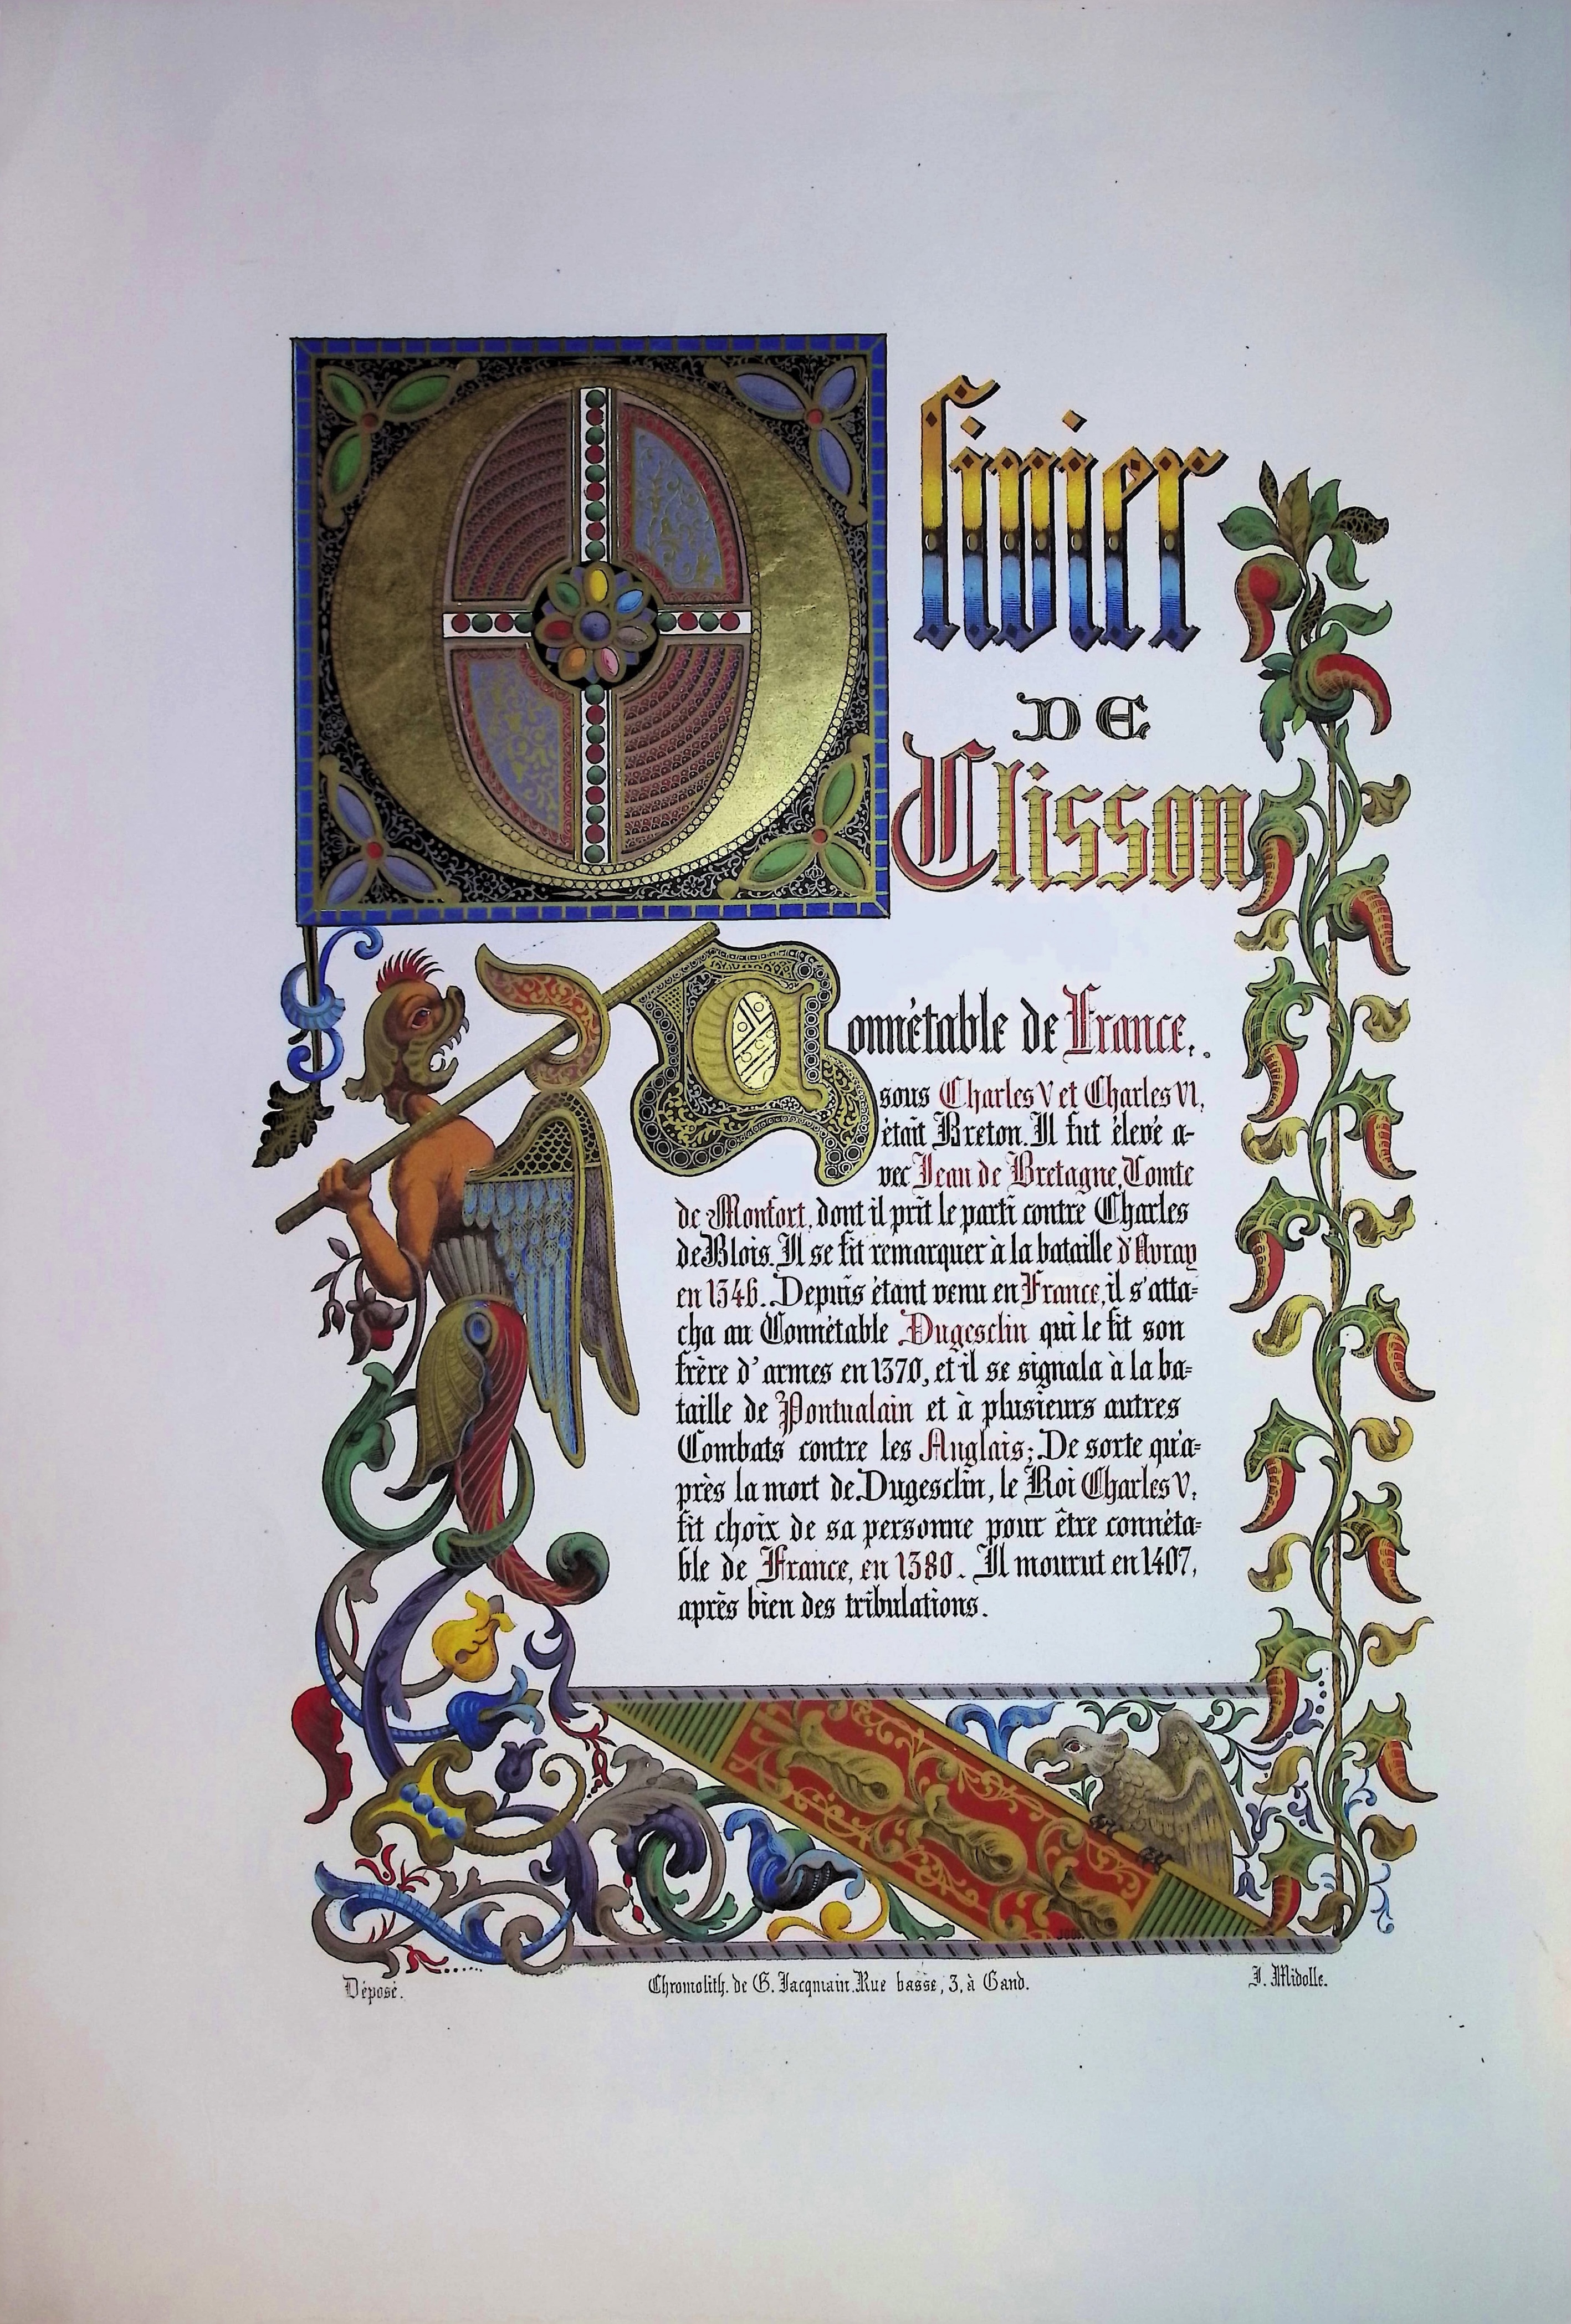 Olivier
DE
Clisson
Connétable de France,.
sous Charles V et Charles VI,
était Breton. Il fut élevé a-
vec Jean de Bretagne, Comte
de Monfort, dont il prit le parti contre Charles
de Blois. Il se fit remarquer à la bataille d'Avray
en 1346. Depuis étant venu en France, il s'atta=
cha au Connétable Dugesclin qui le fit son
frère d'armes en 1370, et il se signala à la ba=
taille de Pontualain et à plusieurs autres
Combats contre les Anglais; De sorte qu'a=
près la mort de Dugesclin, le Roi Charles V,
fit choix de sa personne pour être connéta=
ble de France, en 1380. Il mourut en 1407,
après bien des tribulations.
Déposé.
Chromolith. de G. Jacqmain. Rue basse, 3, à Gand.
J. Midolle.